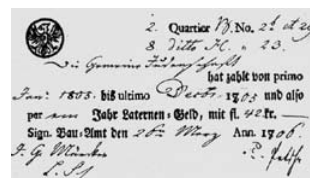 2. Quartier B. No. 2
8 ditto H. " 23.
Die Gemeine Judenschaft
hat zahlt von primo
Jan: 1805. bis ultimo Decbr. 1805 und also
per ein Jahr Laternen-Geld, mit fl. 42 kr.
Sign. Bau-Amt den 26ten Merz Ann. 1806.
J. G.